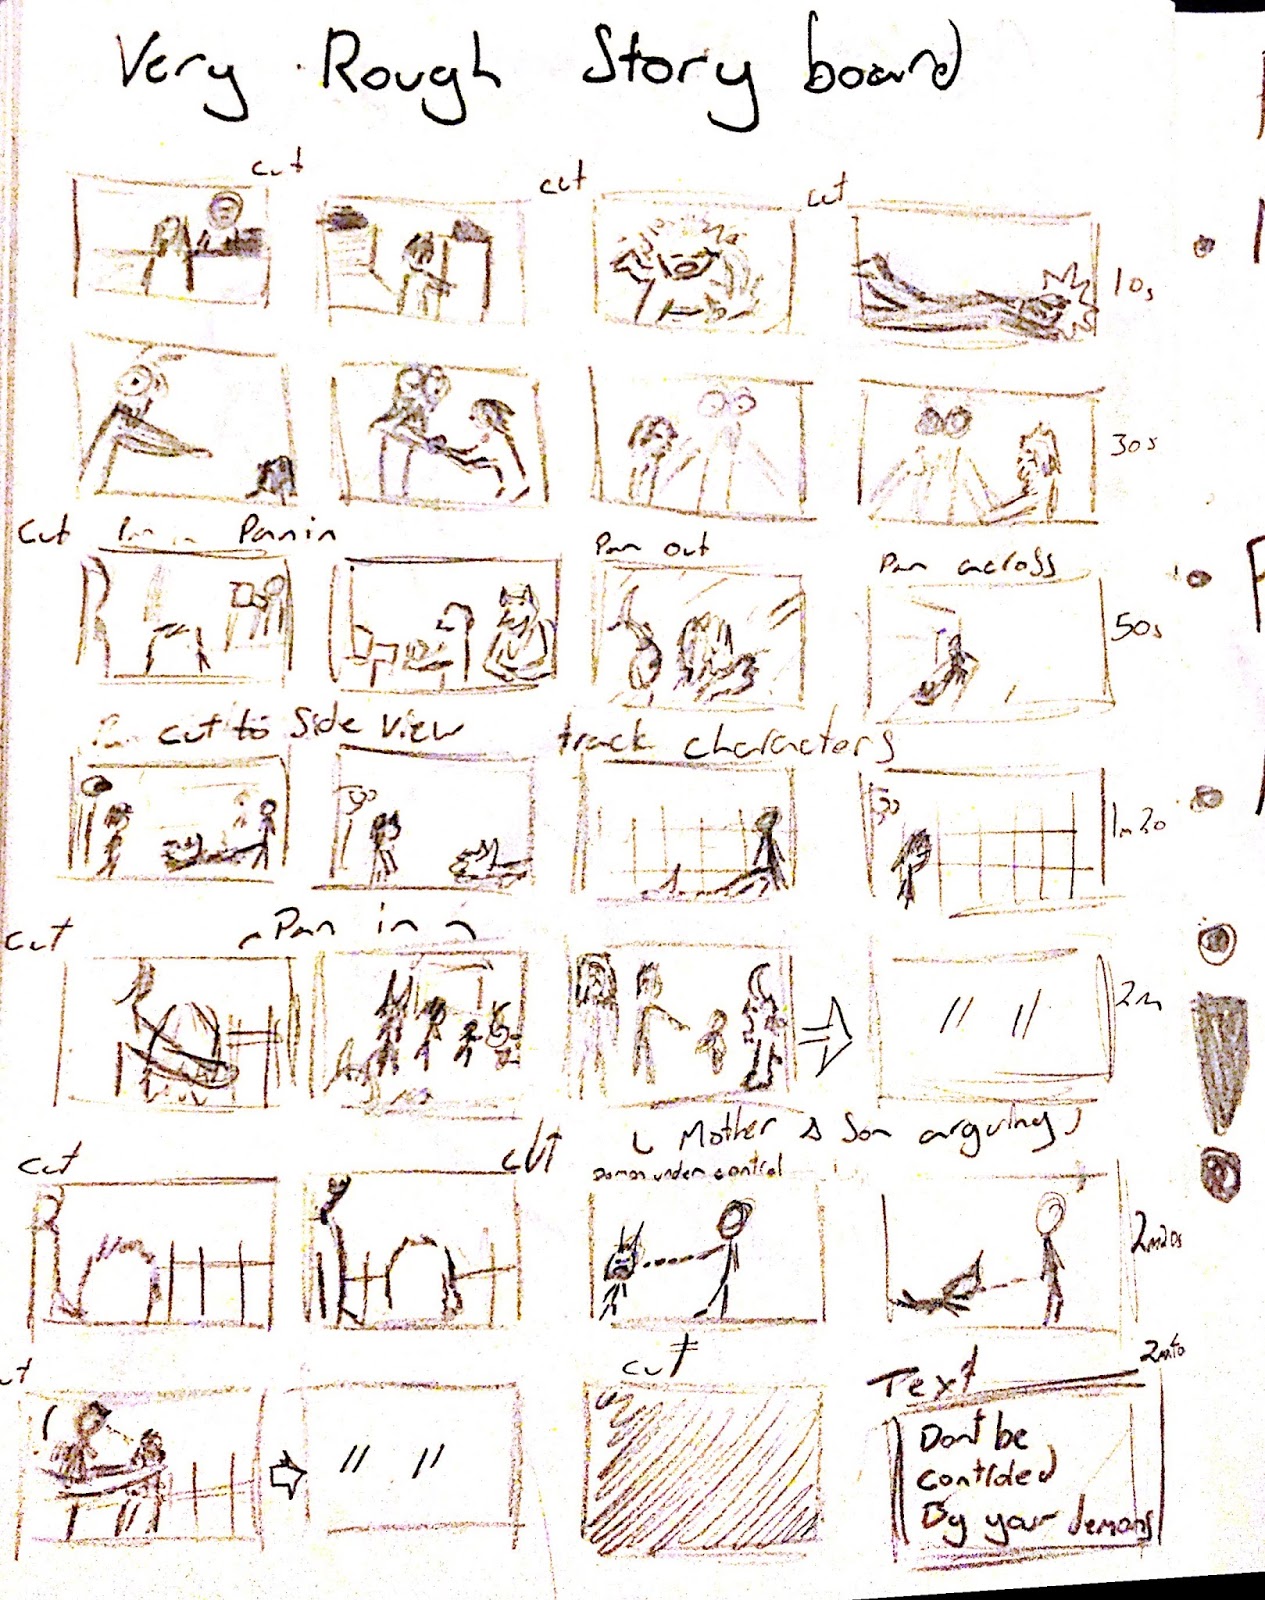 Very Rough Story board
cut
cut
cut
10s
30s
cut
Pan in
Pan out
Pan across
50s
cut to Side view
track charactors
1m20
cut
Pan in
2m
Mother & Son arguing
cut
cut
Demon under control
2m20s
cut
Text
Dont be
controled
By your demons